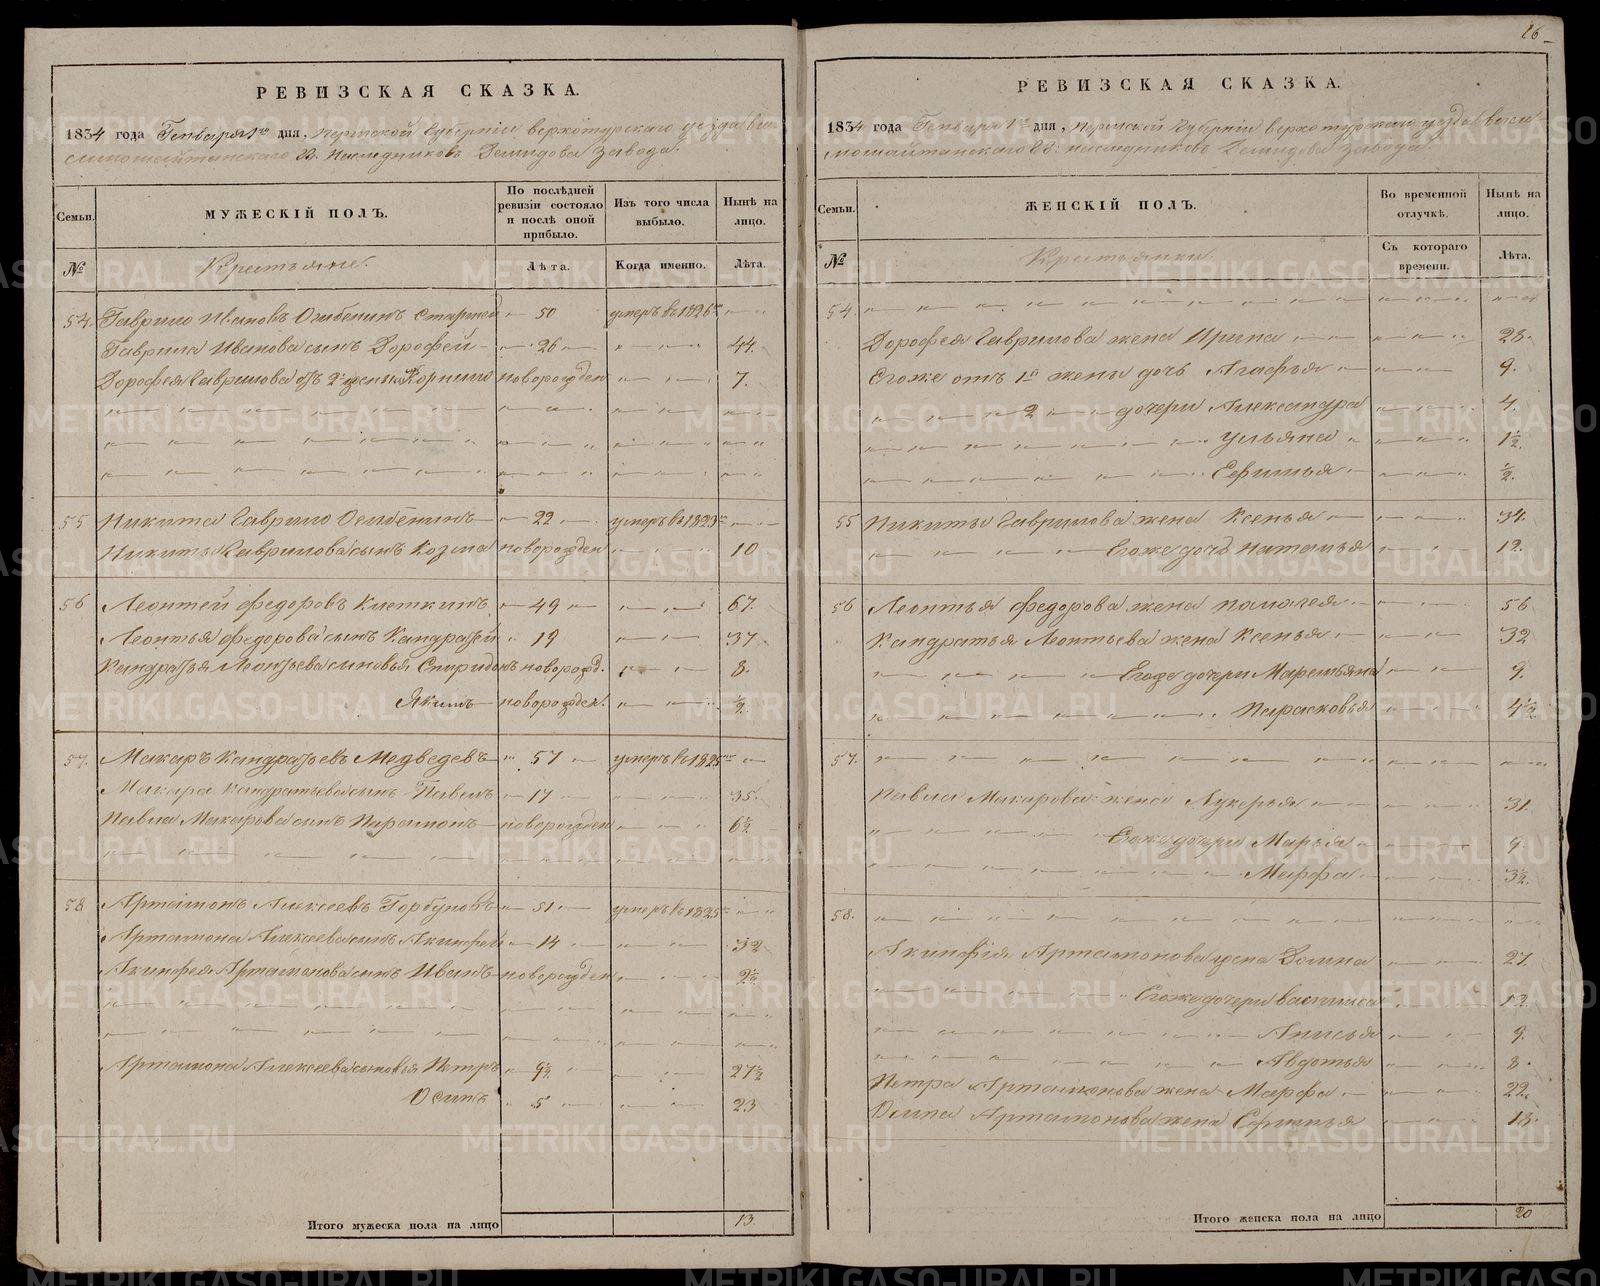 РЕВИЗСКАЯ СКАЗКА.
1834 года Генваря 1го дня, Пермской Губернии верхотурскаго уезда ви-
симошайтанскаго ГГ. Наследниковъ Демидова завода.
Семьи.
МУЖЕСКІЙ ПОЛЪ.
По послѣдней ревизіи состояло и послѣ оной прибыло.
Изъ того числа выбыло.
Нынѣ на лицо.
№
Крестьяне.
Лѣта.
Когда именно.
Лѣта.
54. Гаврило Ивановъ Старшей 50 умеръ въ 1826
Гаврила Иванова сынъ Дорофей 26 44.
Дорофея Гаврилова отъ 2й жены Корнило новорожден 7.
55 Никита Гаврило 22 умеръ въ 1823
Никиты Гаврилова сынъ Козма новорожден 10
56 Леонтей Федоровъ Клеткинъ 49 67.
Леонтья Федорова сынъ Кандратей 19 37
Кандратья Леонтьева сыновья Спиридонъ новорожд. 8.
Якимъ новорожден. ½
57. Макаръ Кандратьевъ Медведевъ 57 умеръ въ 1825
Макара Кандратьева сынъ Павелъ 17 35.
Павла Макарова сынъ Парамонъ новорожден 6½
58 Артамонъ Алексеевъ Горбуновъ 51 умеръ въ 1825
Артамона Алексеева сынъ Акинфей 14 32
Акинфея Артамонова сынъ Иванъ новорожден 2½
Артамона Алексеева сыновья Петръ 9½ 27½
Осипъ 5 23
Итого мужеска пола на лицо 13.
16
РЕВИЗСКАЯ СКАЗКА.
1834 года Генваря 1го дня, Пермской Губернии верхотурскаго уезда виси-
мошайтанскаго ГГ. наследниковъ Демидова завода.
Семьи.
ЖЕНСКІЙ ПОЛЪ.
Во временной отлучкѣ.
Нынѣ на лицо.
№
Крестьянки.
Съ котораго времени.
Лѣта.
54.
Дорофея Гаврилова жена Ирина 28.
Егоже отъ 1й жены дочь Агафья 9.
2 дочери Александра 4.
Ульяна 1½
Ефимья ½
55 Никиты Гаврилова жена Ксенья 34.
Егоже дочь Наталья 12.
56 Леонтья Федорова жена Палагея 56
Кандратья Леонтьева жена Ксенья 32
Егоже дочери Маремьяна 9.
Парасковья 4½
57.
Павла Макарова жена Лукерья 31.
Егоже дочери Марья 9.
Марфа 3½
58.
Акинфія Артамонова жена Домна 27.
Егоже дочери Василиса 12.
Анисья 9.
Авдотья 8.
Петра Артамонова жена Марфа 22.
Осипа Артамонова жена Ефимья 18.
Итого женска пола на лицо 20
METRIKI.GASO-URAL.RU